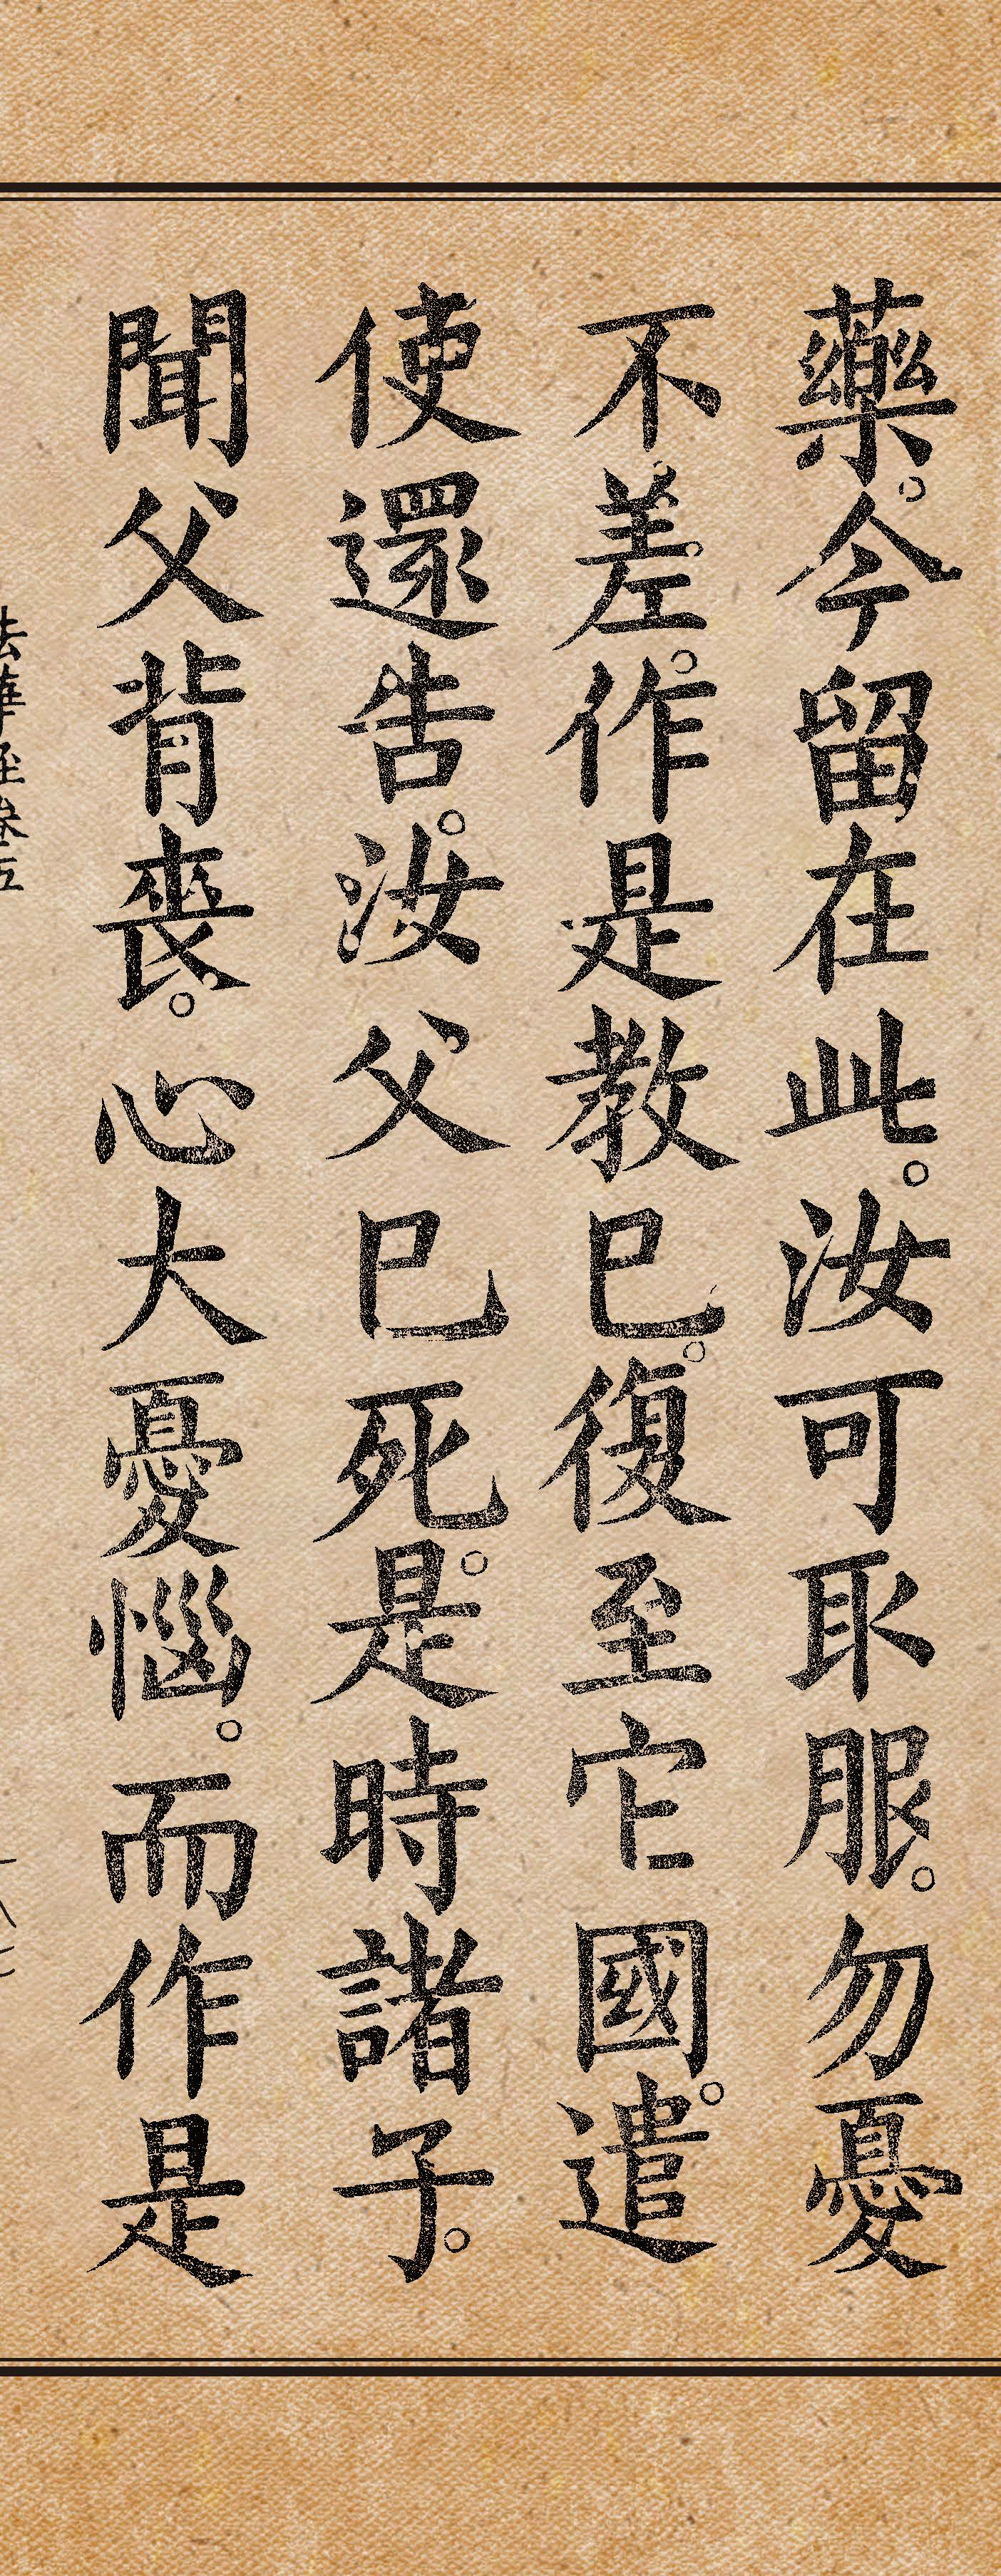 藥。今留在此。汝可取服。勿憂
不差。作是教已。復至它國。遣
使還告。汝父已死。是時諸子。
聞父背喪。心大憂惱。而作是
法華經卷五